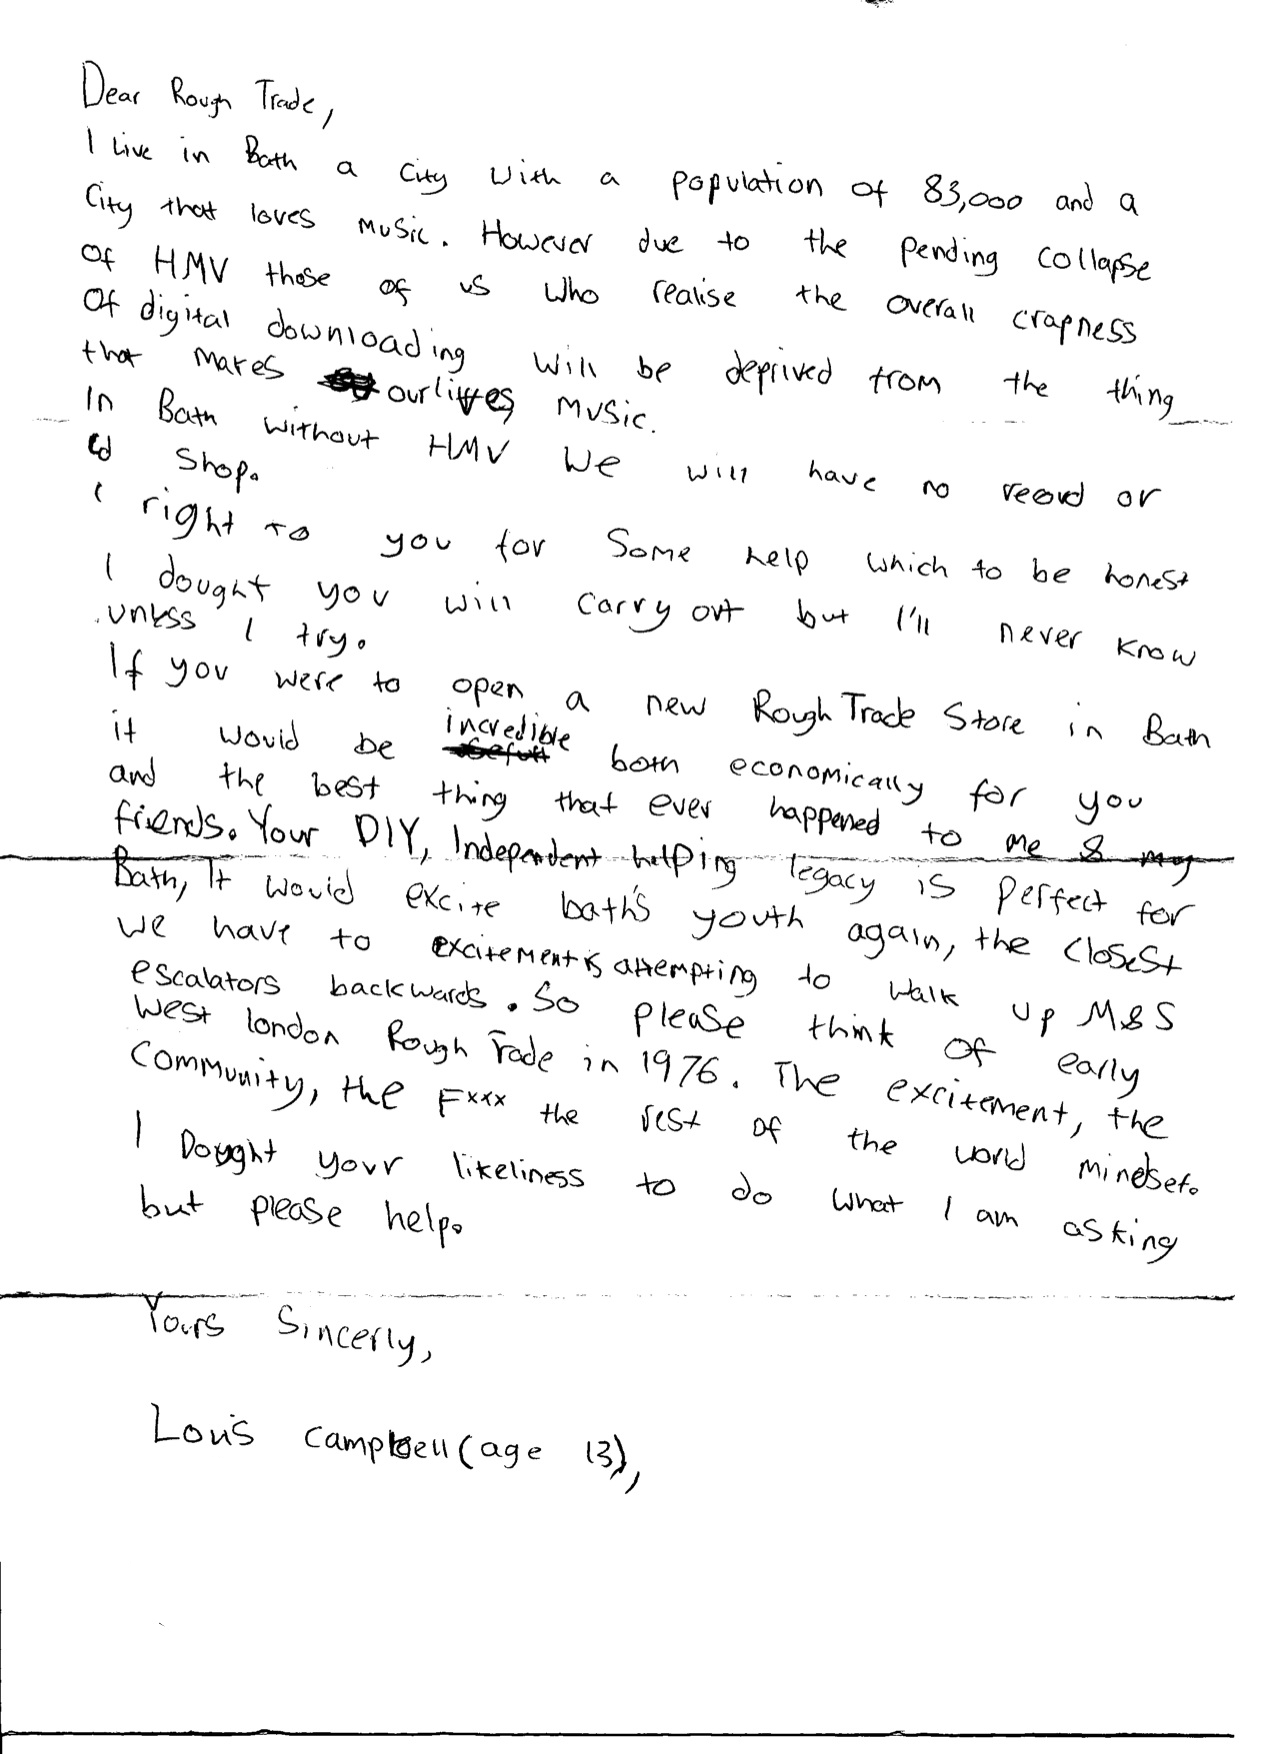 Dear Rough Trade,
I Live in Bath a City with a population of 83,000 and a
City that loves music. However due to the pending collapse
Of HMV those of us who realise the overall crapness
Of digital downloading will be deprived from the thing
that makes our lives music.
In Bath without HMV We will have no record or
Cd Shop.
I right to you for Some help which to be honest
I dought you will carry out but I'll never know
unless I try.
If you were to open a new Rough Trade Store in Bath
it would be incredible both economically for you
and the best thing that ever happened to me & my
friends. Your DIY, Independent helping legacy is perfect for
Bath, It would excite bath's youth again, the closest
we have to excitement is attempting to walk up M&S
escalators backwards. So please think of early
West london Rough Trade in 1976. The excitement, the
Community, the Fxxx the rest of the world mindset.
I Dought your likeliness to do what I am asking
but please help.
Yours Sincerly,
Louis Campbell (age 13),